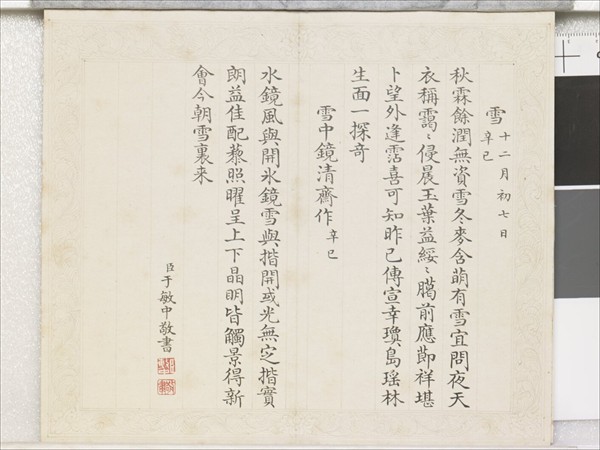 雪 十二月初七日
辛巳
秋霖餘潤無資雪冬麥含萌有雪宜問夜天
衣稱靄〻侵晨玉葉益綏〻臈前應節祥堪
卜望外逢霑喜可知昨已傳宣幸瓊島瑶林
生面一探竒
雪中鏡清齋作 辛巳
水鏡風與開氷鏡雪與揩開或光無定揩實
朗益佳配藜照曜呈上下晶明皆觸景得新
會今朝雪裏來
臣于敏中敬書